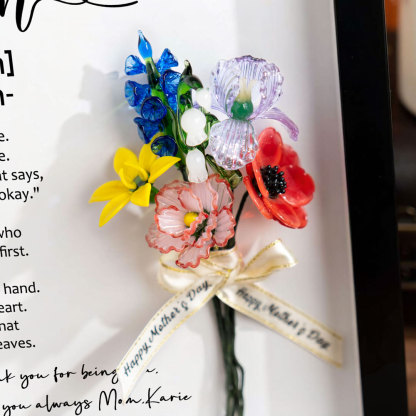 n
n]
n-
e.
e.
t says,
okay."
who
first.
hand.
eart.
hat
eaves.
k you for being
you always Mom, Karie
Happy Mother's Day
Happy Mother's Day